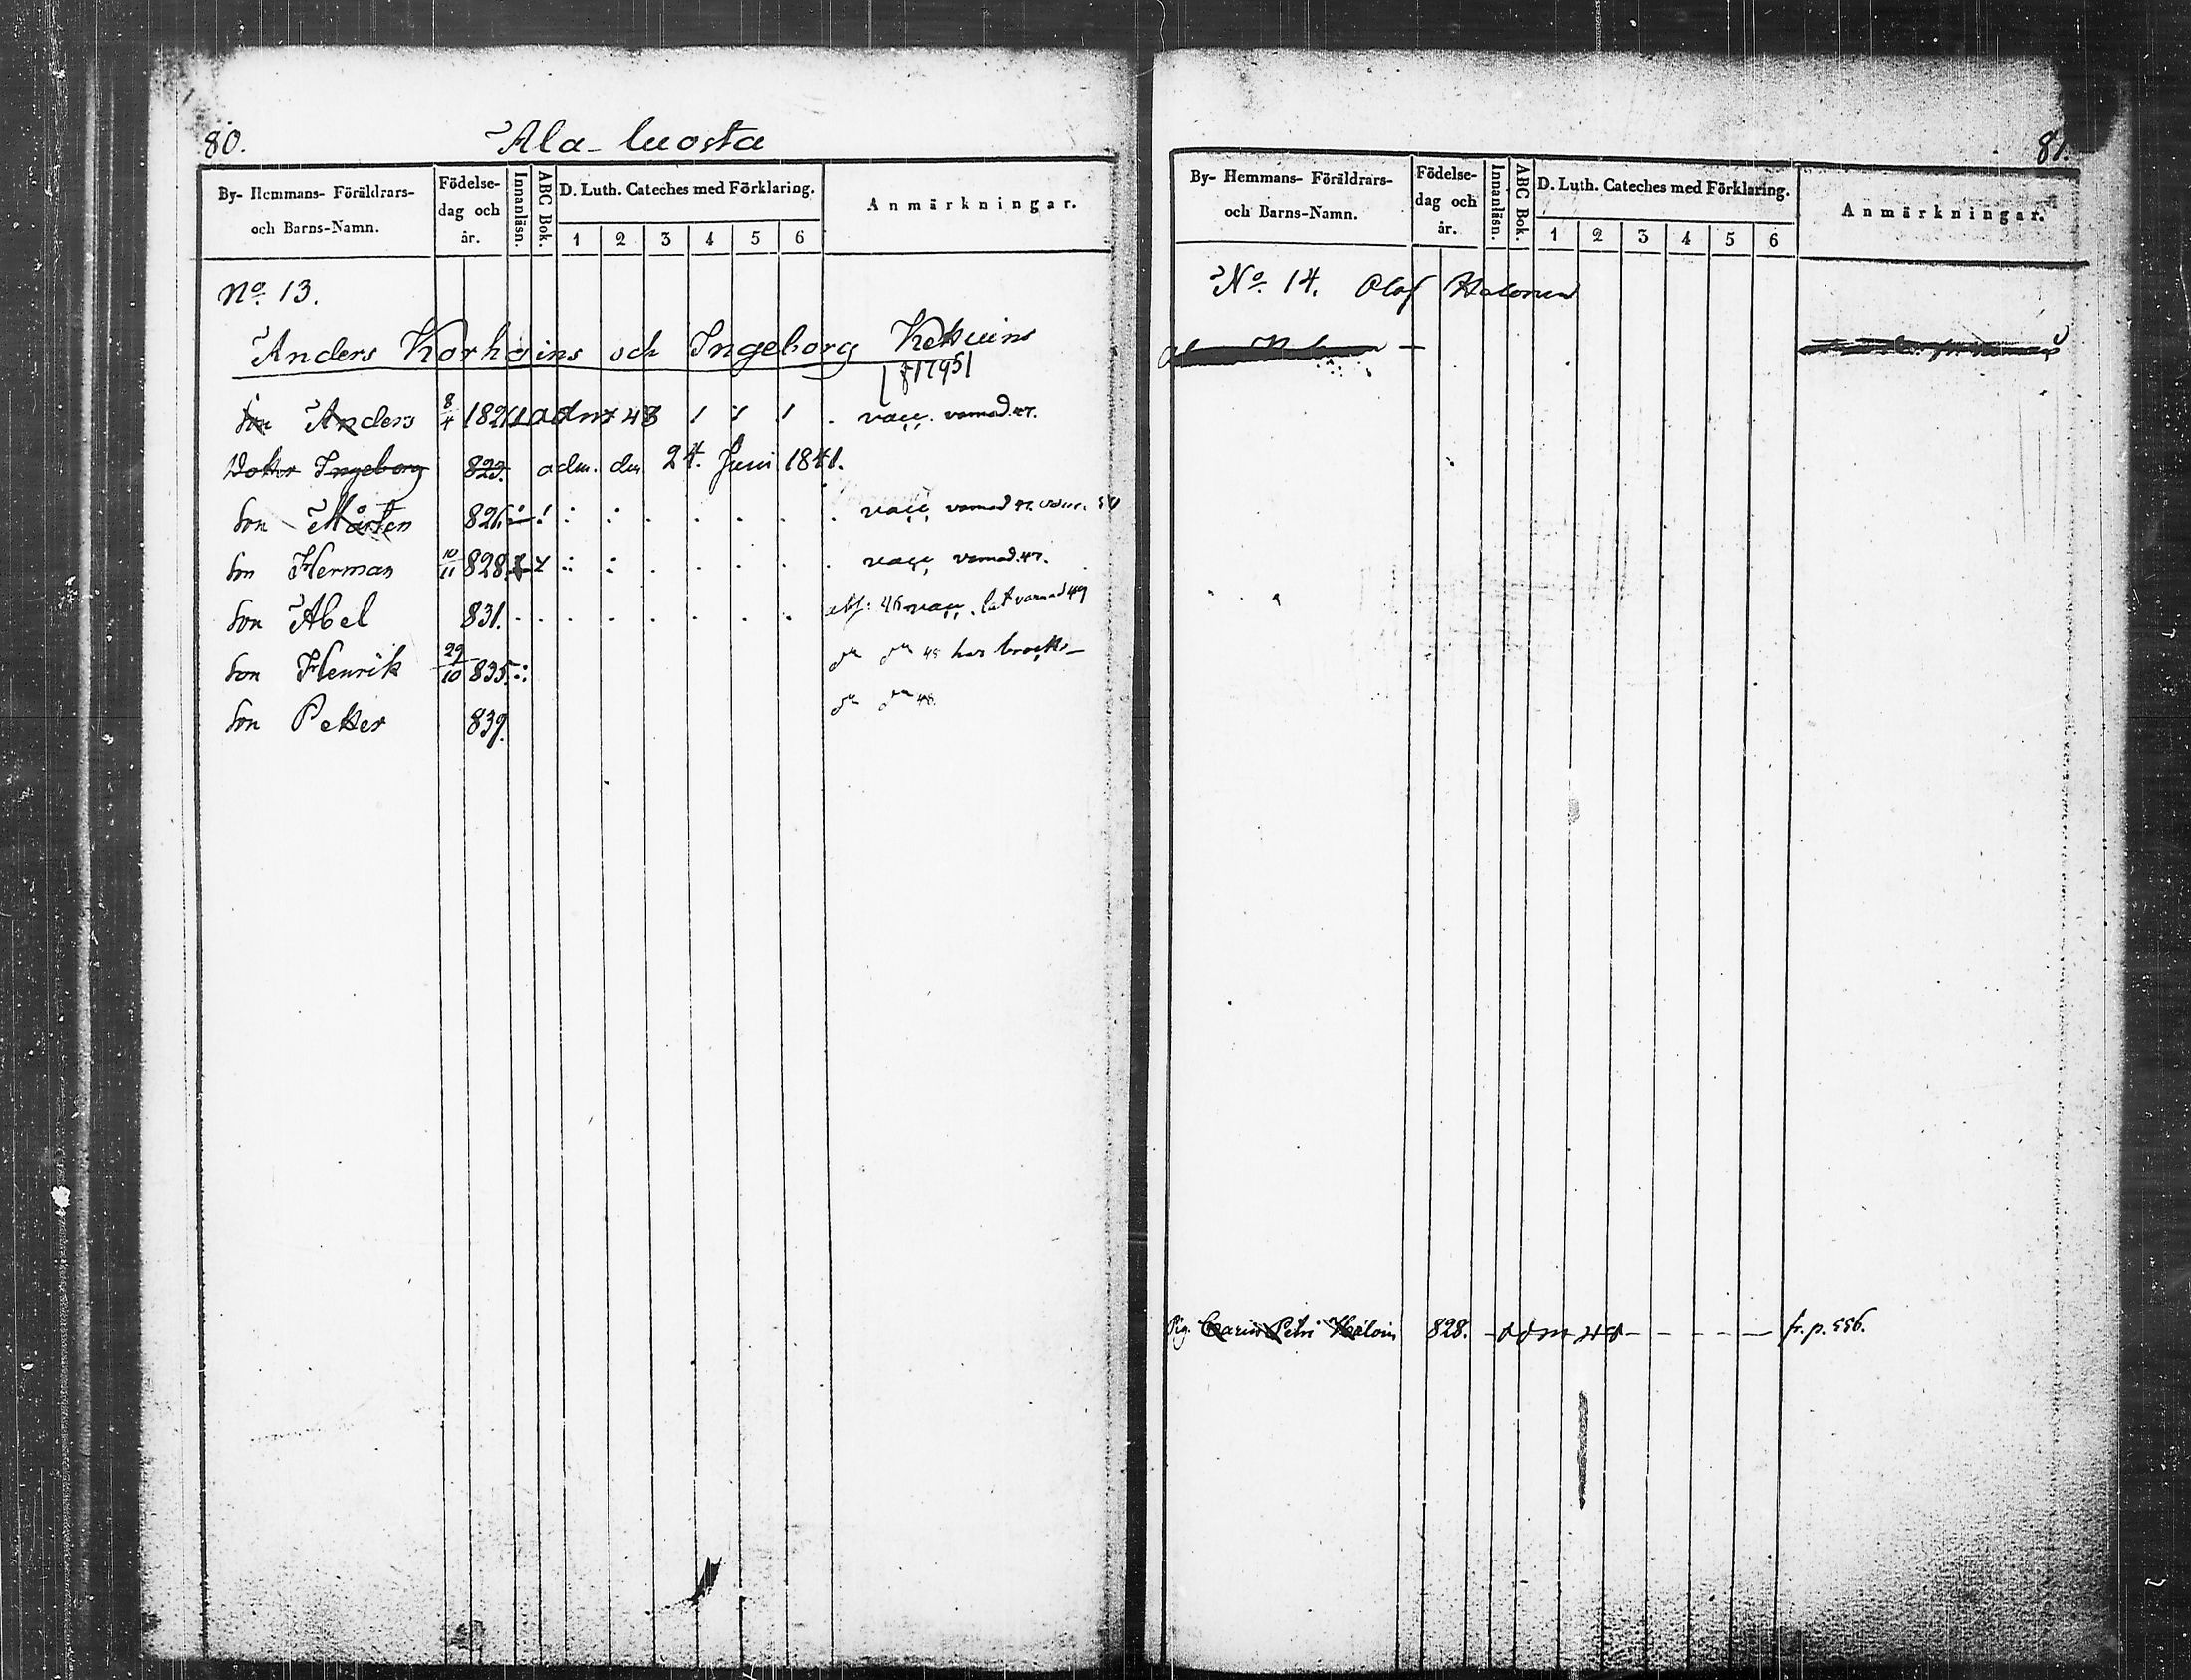 80.
Ala-luosta
By- Hemmans- Föräldrars- och Barns-Namn.
Födelse- dag och år.
Innanläsn.
ABC Bok.
D. Luth. Cateches med Förklaring.
1 2 3 4 5 6
Anmärkningar.
No. 13.
Anders Korhoins och Ingeborg
1795
Son Anders 8/4 1821 adm 43 vacc. varnad. 47.
Dotter Ingeborg 823. adm. den 24. Juni 1841.
Son Mårten 826. vacc. varnad 47.
Son Herman 10/11 828. vacc. varnad. 47.
Son Abel 831. 46 vacc. lat varnad 49
Son Henrik 29/10 835. har
Son Petter 839.
81.
By- Hemmans- Föräldrars- och Barns-Namn.
Födelse- dag och år.
Innanläsn.
ABC Bok.
D. Luth. Cateches med Förklaring.
1 2 3 4 5 6
Anmärkningar.
No. 14. Olof Halonen
Pig. Carin Petri 828. - adm 48 - - - - - fr. p. 556.